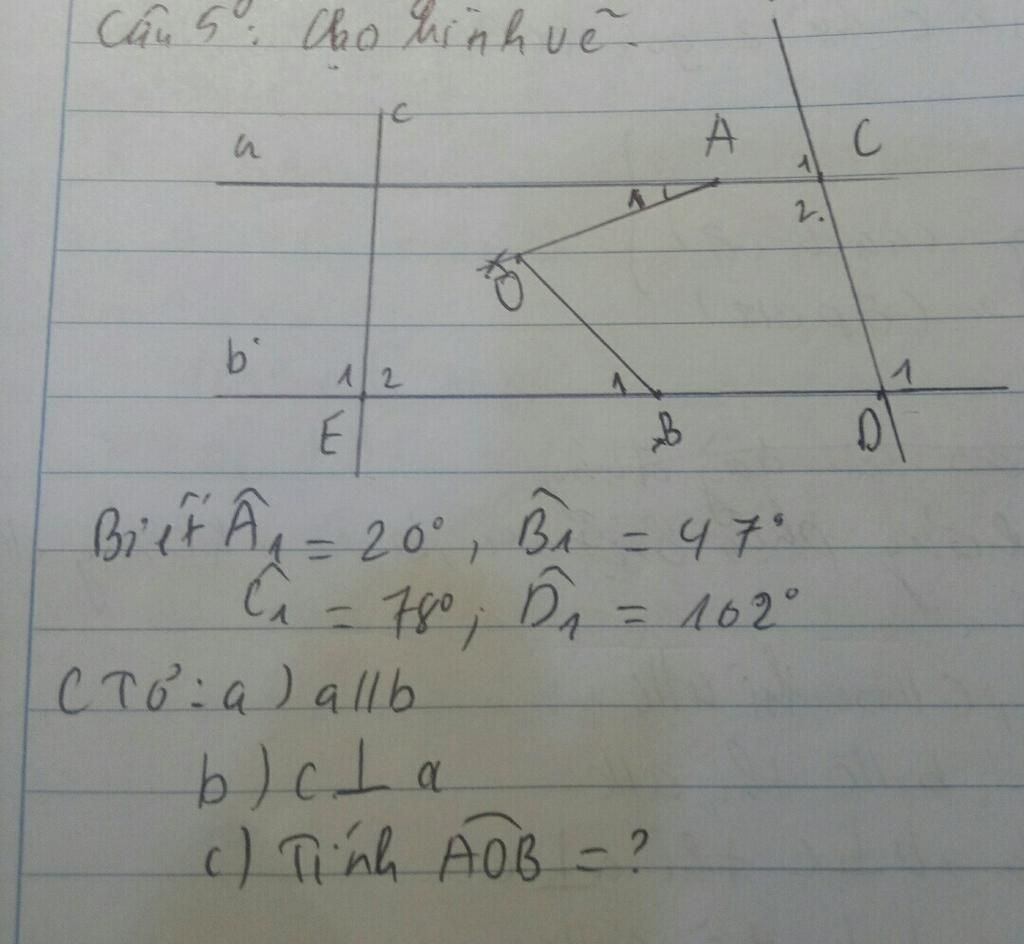 Câu 5: Cho hình vẽ.
c
a
A
C
1
1
2.
O
b
1 2
1
1
E
B
D
Biết Â1 = 20°, B̂1 = 47°
Ĉ1 = 78°; D̂1 = 102°
CTỏ: a) a//b
b) c⊥a
c) Tính AOB = ?